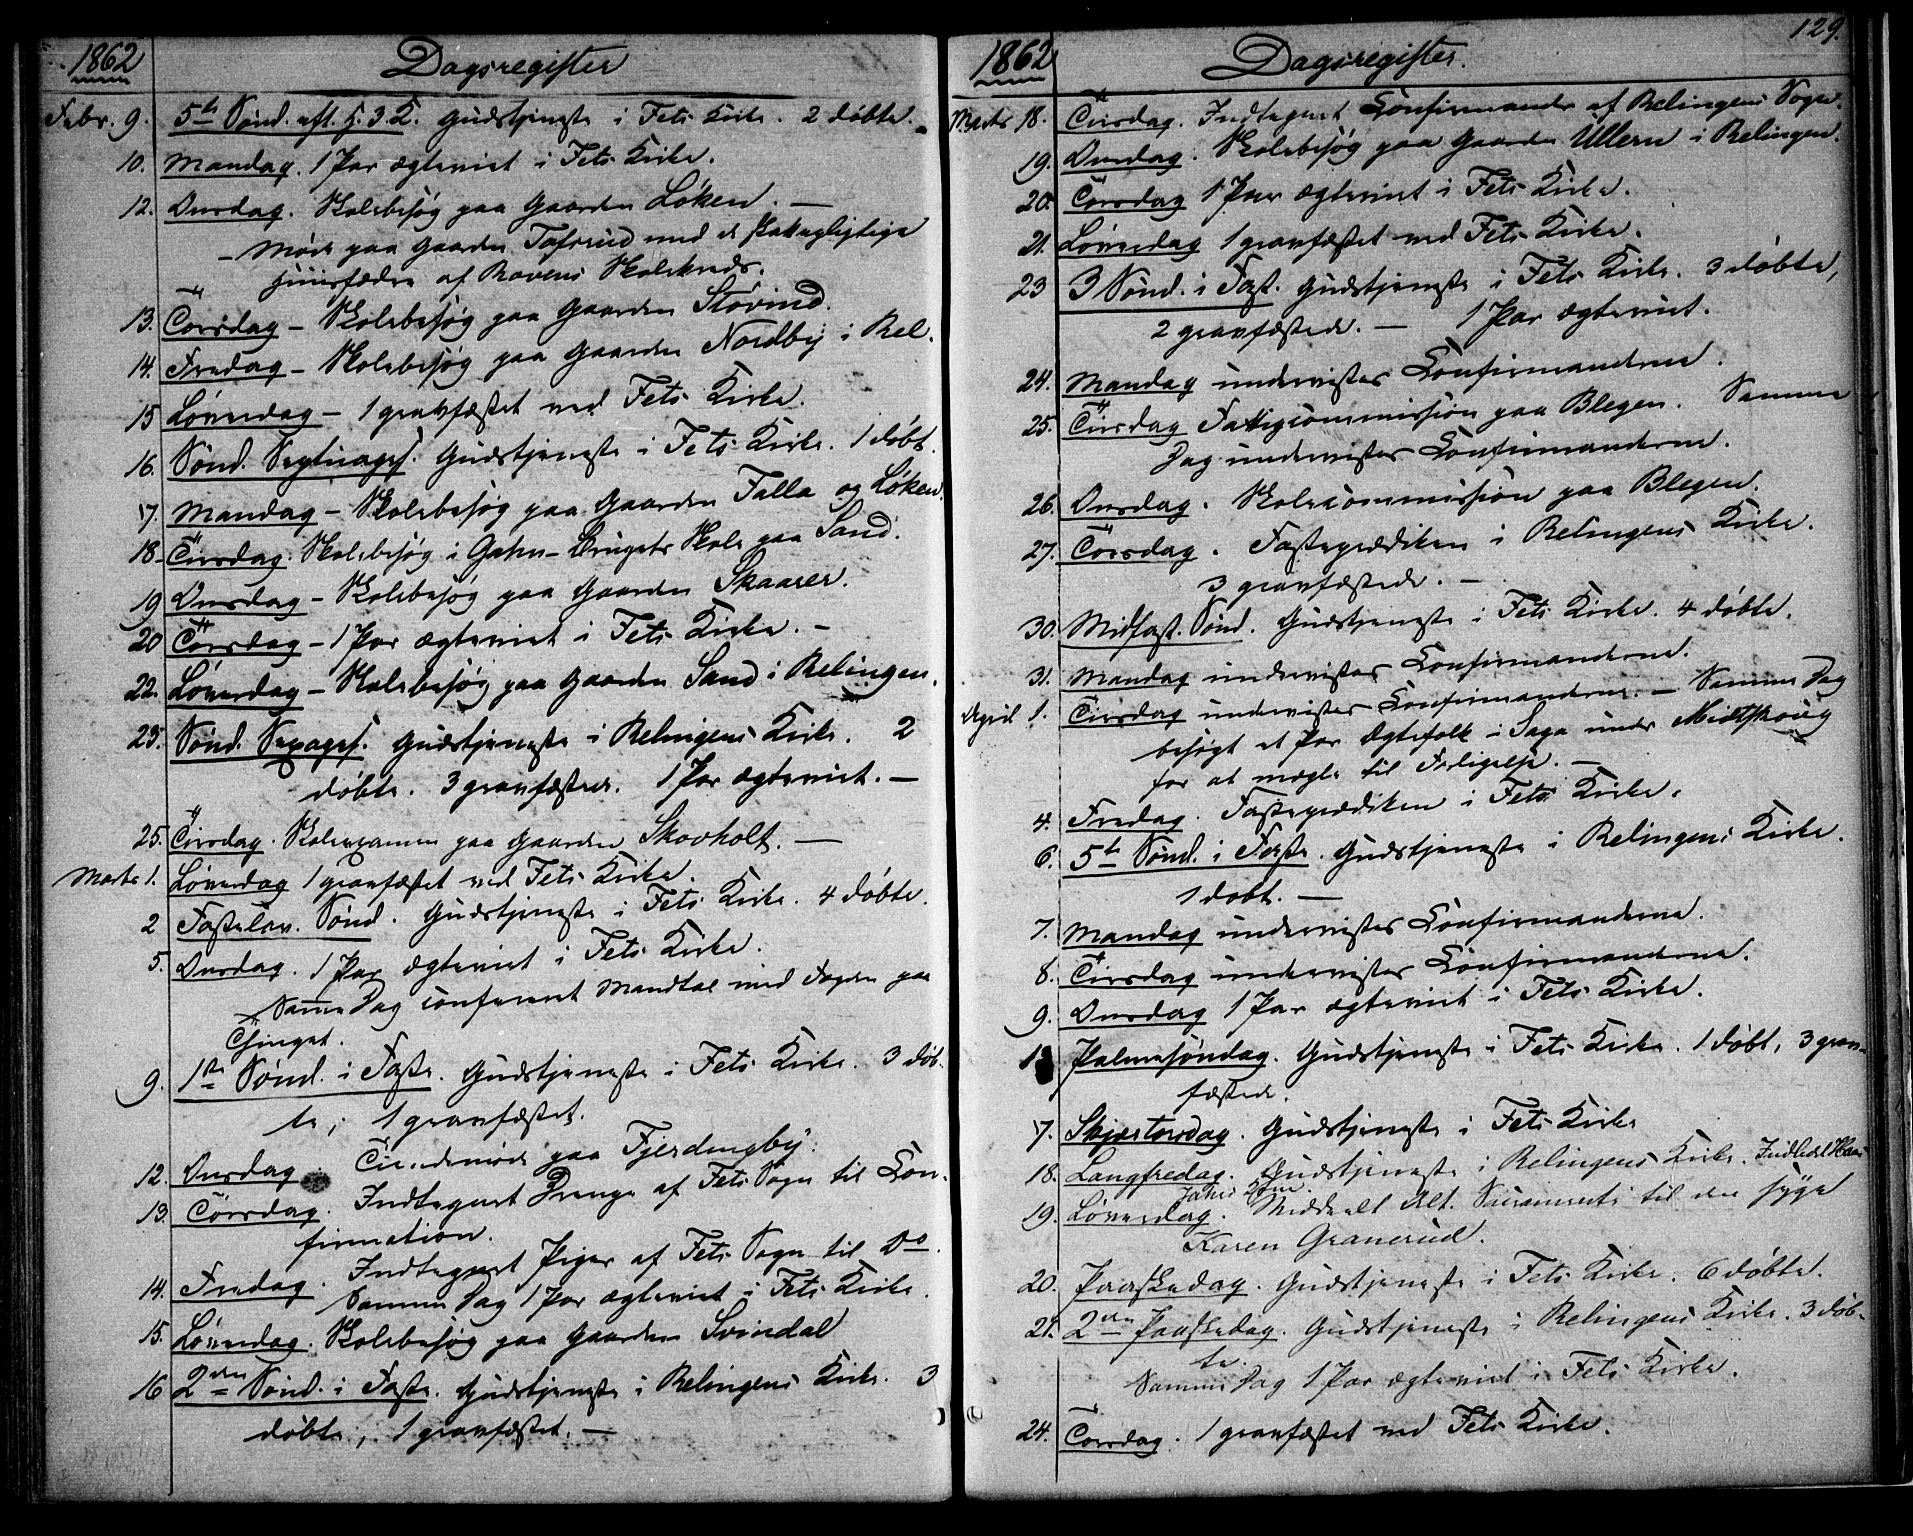 1862 Dagsregister
Febr. 9. 5te Sønd. eft. H. 3 K. Gudstjeneste i Fets Kirke. 2 døbte.
10. Mandag. 1 Par ægteviet i Fets Kirke.
12. Onsdag. Skolebesøg paa Gaarden Løken. —
— Møde paa Gaarden Tofsrud med de skattepligtige
Huusfædre af Rovens Skolekreds.
13. Torsdag — Skolebesøg paa Gaarden Stovind.
14. Fredag — Skolebesøg paa Gaarden Nordby i Rel.
15 Løverdag — 1 gravfæstet ved Fets Kirke.
16. Sønd. Septuages. Gudstjeneste i Fets Kirke. 1 døbt.
17. Mandag — Skolebesøg paa Gaarden Falla og Løken.
18. Tirsdag. Skolebesøg i Gahn-Brugets Skole paa Sand.
19 Onsdag — Skolebesøg paa Gaarden Skaarer.
20 Torsdag — 1 Par ægteviet i Fets Kirke. —
22. Løverdag — Skolebesøg paa Gaarden Sand i Relingen.
23. Sønd. Sexages. Gudstjeneste i Relingens Kirke. 2
døbte. 3 gravfæstede. 1 Par ægteviet. —
25. Tirsdag. Skoleexamen paa Gaarden Skovholt. —
Marts 1. Løverdag 1 gravfæstet ved Fets Kirke.
2 Fastelav. Sønd. Gudstjeneste i Fets Kirke. 4 døbte.
5. Onsdag. 1 Par ægteviet i Fets Kirke.
Samme Dag confereret Mandtal med Fogden paa
Thinget.
9. 1ste Sønd. i Faste. Gudstjeneste i Fets Kirke. 3 døb-
te; 1 gravfæstet.
12. Onsdag. Tiendemøde paa Fjerdingby.
13. Torsdag. Indtegnet Drenge af Fets Sogn til Con-
firmation.
14. Fredag. Indtegnet Piger af Fets Sogn til Do.
Samme Dag 1 Par ægteviet i Fets Kirke.
15. Løverdag. Skolebesøg paa Gaarden Svindal
16 2den Sønd. i Faste. Gudstjeneste i Relingens Kirke. 3
døbte, 1 gravfæstet. —
129.
1862 Dagsregister.
Marts 18. Tirsdag. Indtegnet Confirmander af Relingens Sogn.
19. Onsdag. Skolebesøg paa Gaarden Ullern i Relingen.
20. Torsdag 1 Par ægteviet i Fets Kirke.
21. Løverdag 1 gravfæstet ved Fets Kirke.
23 3 Sønd. i Fast. Gudstjeneste i Fets Kirke. 3 døbte,
2 gravfæstede. — 1 Par ægteviet.
24. Mandag undervistes Confirmanderne.
25. Tirsdag Fattigcommission paa Blegen. Samme
Dag undervistes Confirmanderne.
26. Onsdag. Skolecommission paa Blegen.
27. Torsdag. Fasteprædiken i Relingens Kirke.
3 gravfæstede. —
30. Midfast. Sønd. Gudstjeneste i Fets Kirke. 4 døbte.
31. Mandag undervistes Confirmanderne.
April 1. Tirsdag undervistes Confirmanderne. — Samme Dag
besøgt et Par Ægtefolk i Saga under Midtskoug
for at mægle til Forligelse. —
4. Fredag. Fasteprædiken i Fets Kirke.
6. 5te Sønd. i Faste. Gudstjeneste i Relingens Kirke.
1 døbt. —
7. Mandag undervistes Confirmanderne.
8. Tirsdag undervistes Confirmanderne.
9. Onsdag 1 Par ægteviet i Fets Kirke.
13 Palmesøndag. Gudstjeneste i Fets Kirke. 1 døbt, 3 grav-
fæstede.
17. Skjærtorsdag. Gudstjeneste i Fets Kirke
18. Langfredag. Gudstjeneste i Relingens Kirke. Indledet
19. Løverdag. Meddeelt Alt. Sacramente til den syge
Karen Granerud.
20. Paaskedag. Gudstjeneste i Fets Kirke. 6 døbte.
21. 2den Paaskedag. Gudstjeneste i Relingens Kirke. 3 døb-
te.
Samme Dag 1 Par ægteviet i Fets Kirke.
24. Torsdag. 1 gravfæstet ved Fets Kirke.